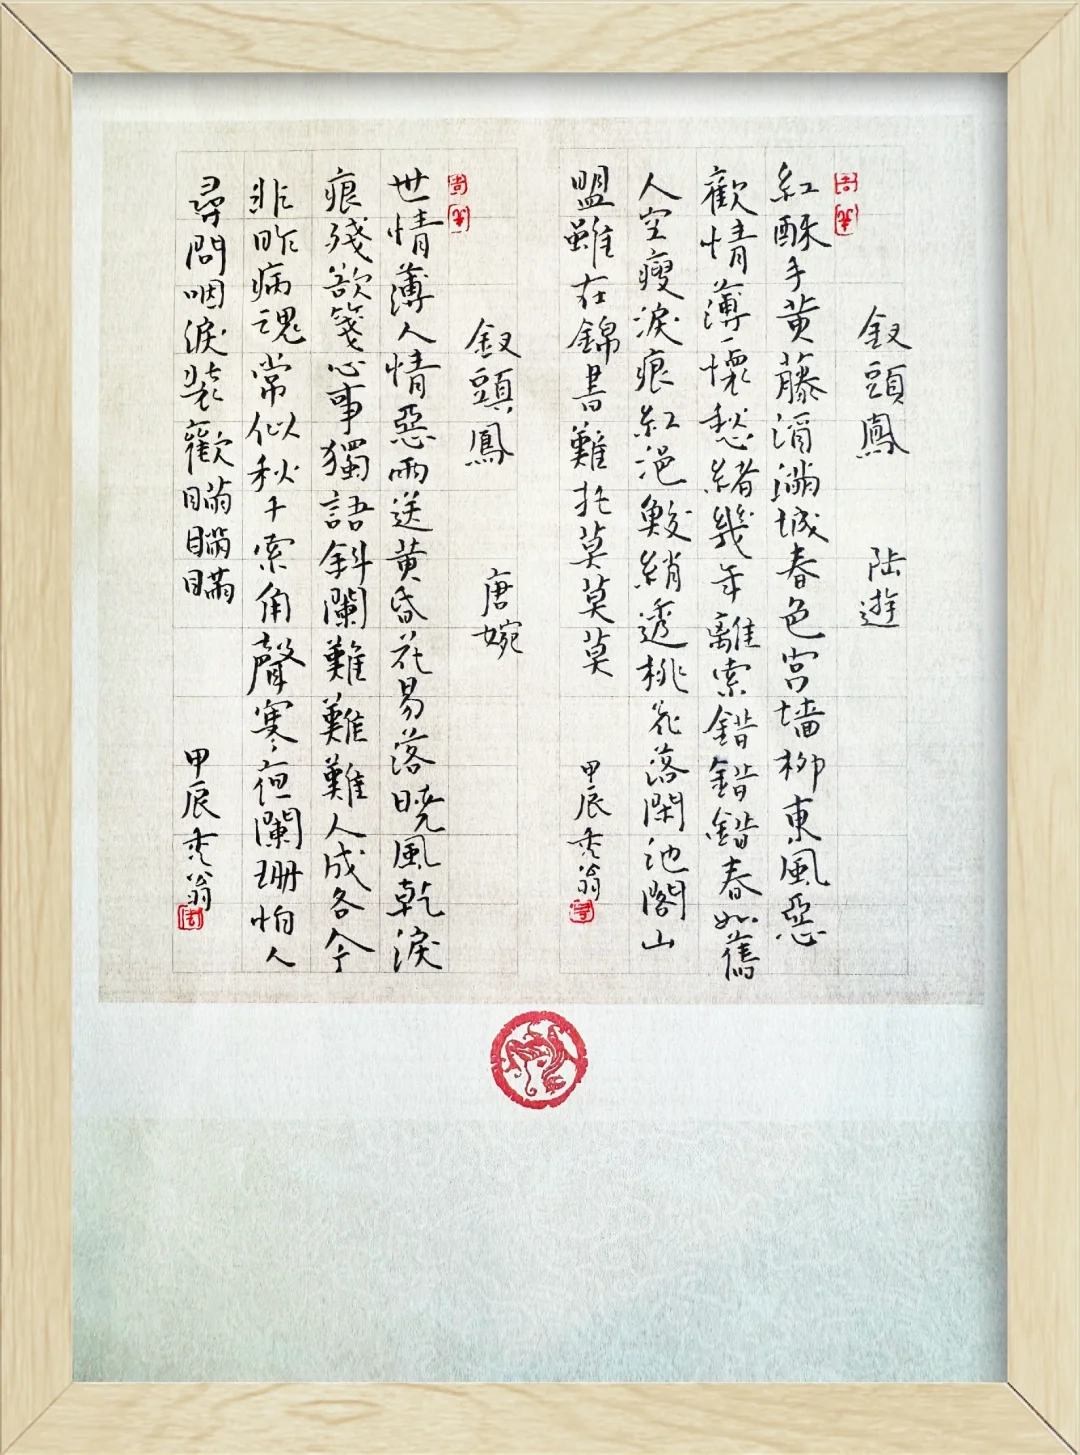 釵頭鳳 陸遊
紅酥手黄藤酒滿城春色宫墙柳東風惡
歡情薄一懷愁緒幾年離索錯錯錯春如舊
人空瘦淚痕紅浥鮫綃透桃花落閑池閣山
盟雖在錦書難托莫莫莫 甲辰秃翁
釵頭鳳 唐婉
世情薄人情惡雨送黄昏花易落曉風乾淚
痕殘欲箋心事獨語斜闌難難難人成各今
非昨病魂常似秋千索角聲寒夜闌珊怕人
尋問咽淚装歡瞞瞞瞞 甲辰秃翁